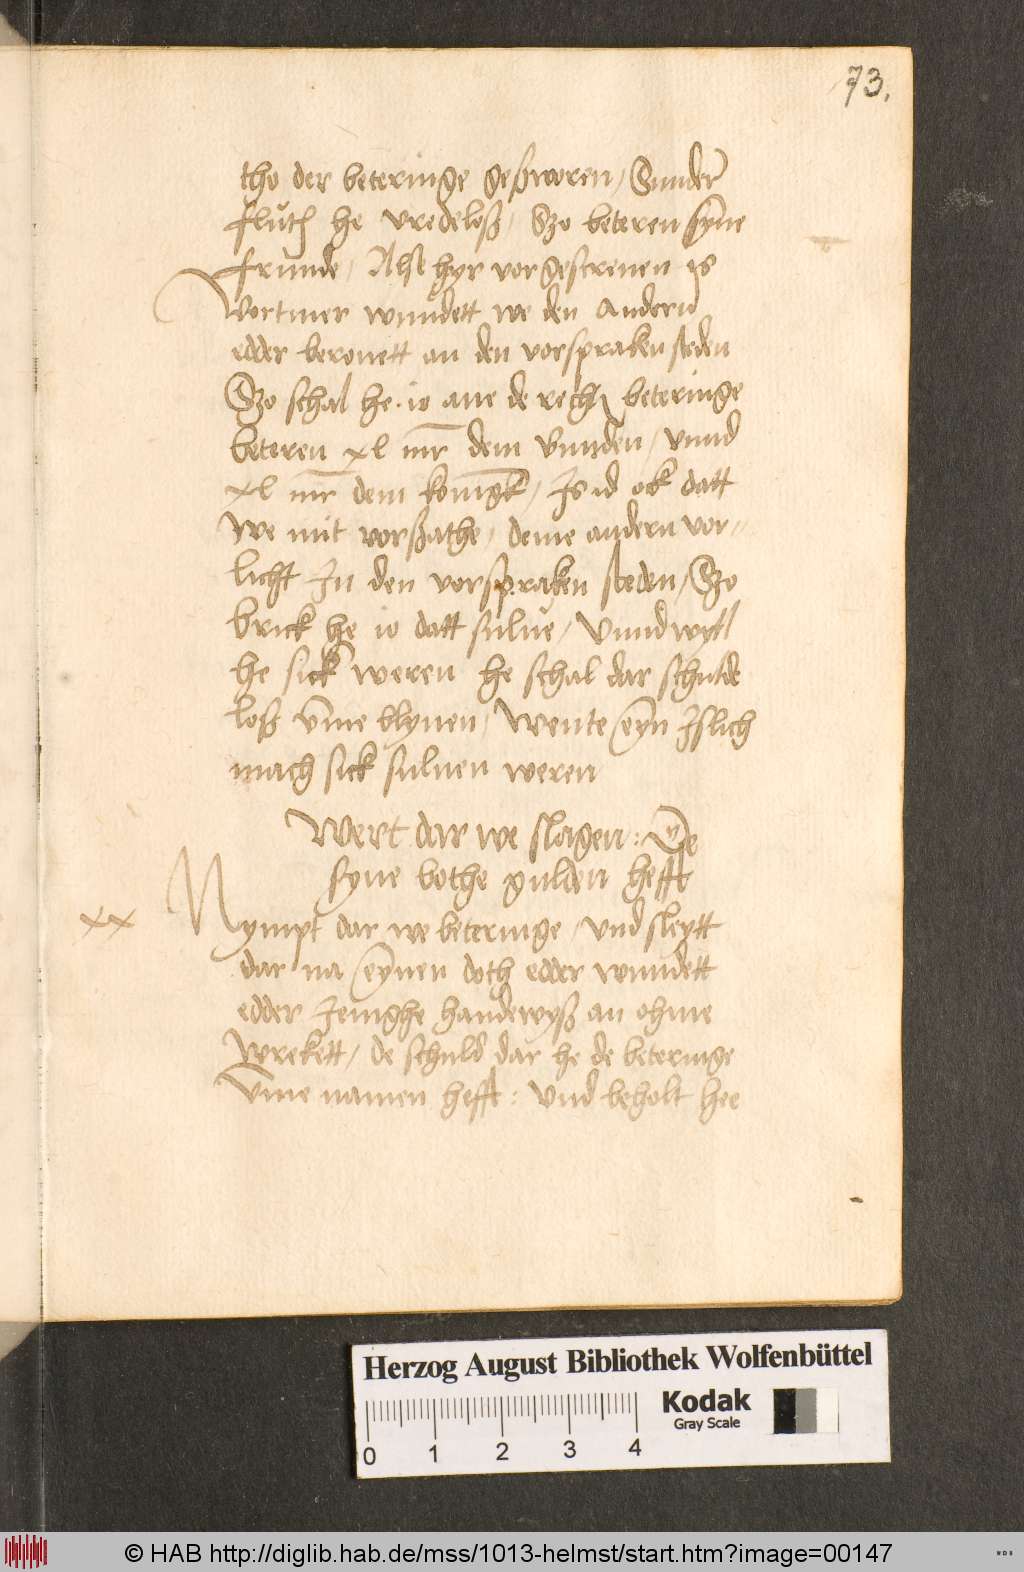 73.
tho der beteringe geßworen / Sunder
fluth he vredeloß / Szo beteren syne
frunde / Alse hyr vorgescreuen is
Vortmer wundett we den Andern
edder berouett an den vorspraken steden
Szo schal he io ane de recht beteringe
beteren xl mr dem Bunden / vnnd
xl mr dem konigk / Is id ock datt
We mit vorßathe / deme andern vor-
licht In den vorspraken steden / Szo
brick he io datt sulue / Vnnd wyll
he sick weren he schal dar schulde
loß vme blyuen / Wente eyn Islich
mach sick suluen weren
Wert dar we slagen : De
syne bothe gulden hefft
xx
Nympt dar we beteringe / vnd sleytt
dar na eynen doth edder wundett
edder Jenighe handewyß an ohme
Wrekett / de schuld dar he de beteringe
Vme namen hefft : vnd beholt hee
Herzog August Bibliothek Wolfenbüttel
Kodak
Gray Scale
0 1 2 3 4
© HAB http://diglib.hab.de/mss/1013-helmst/start.htm?image=00147